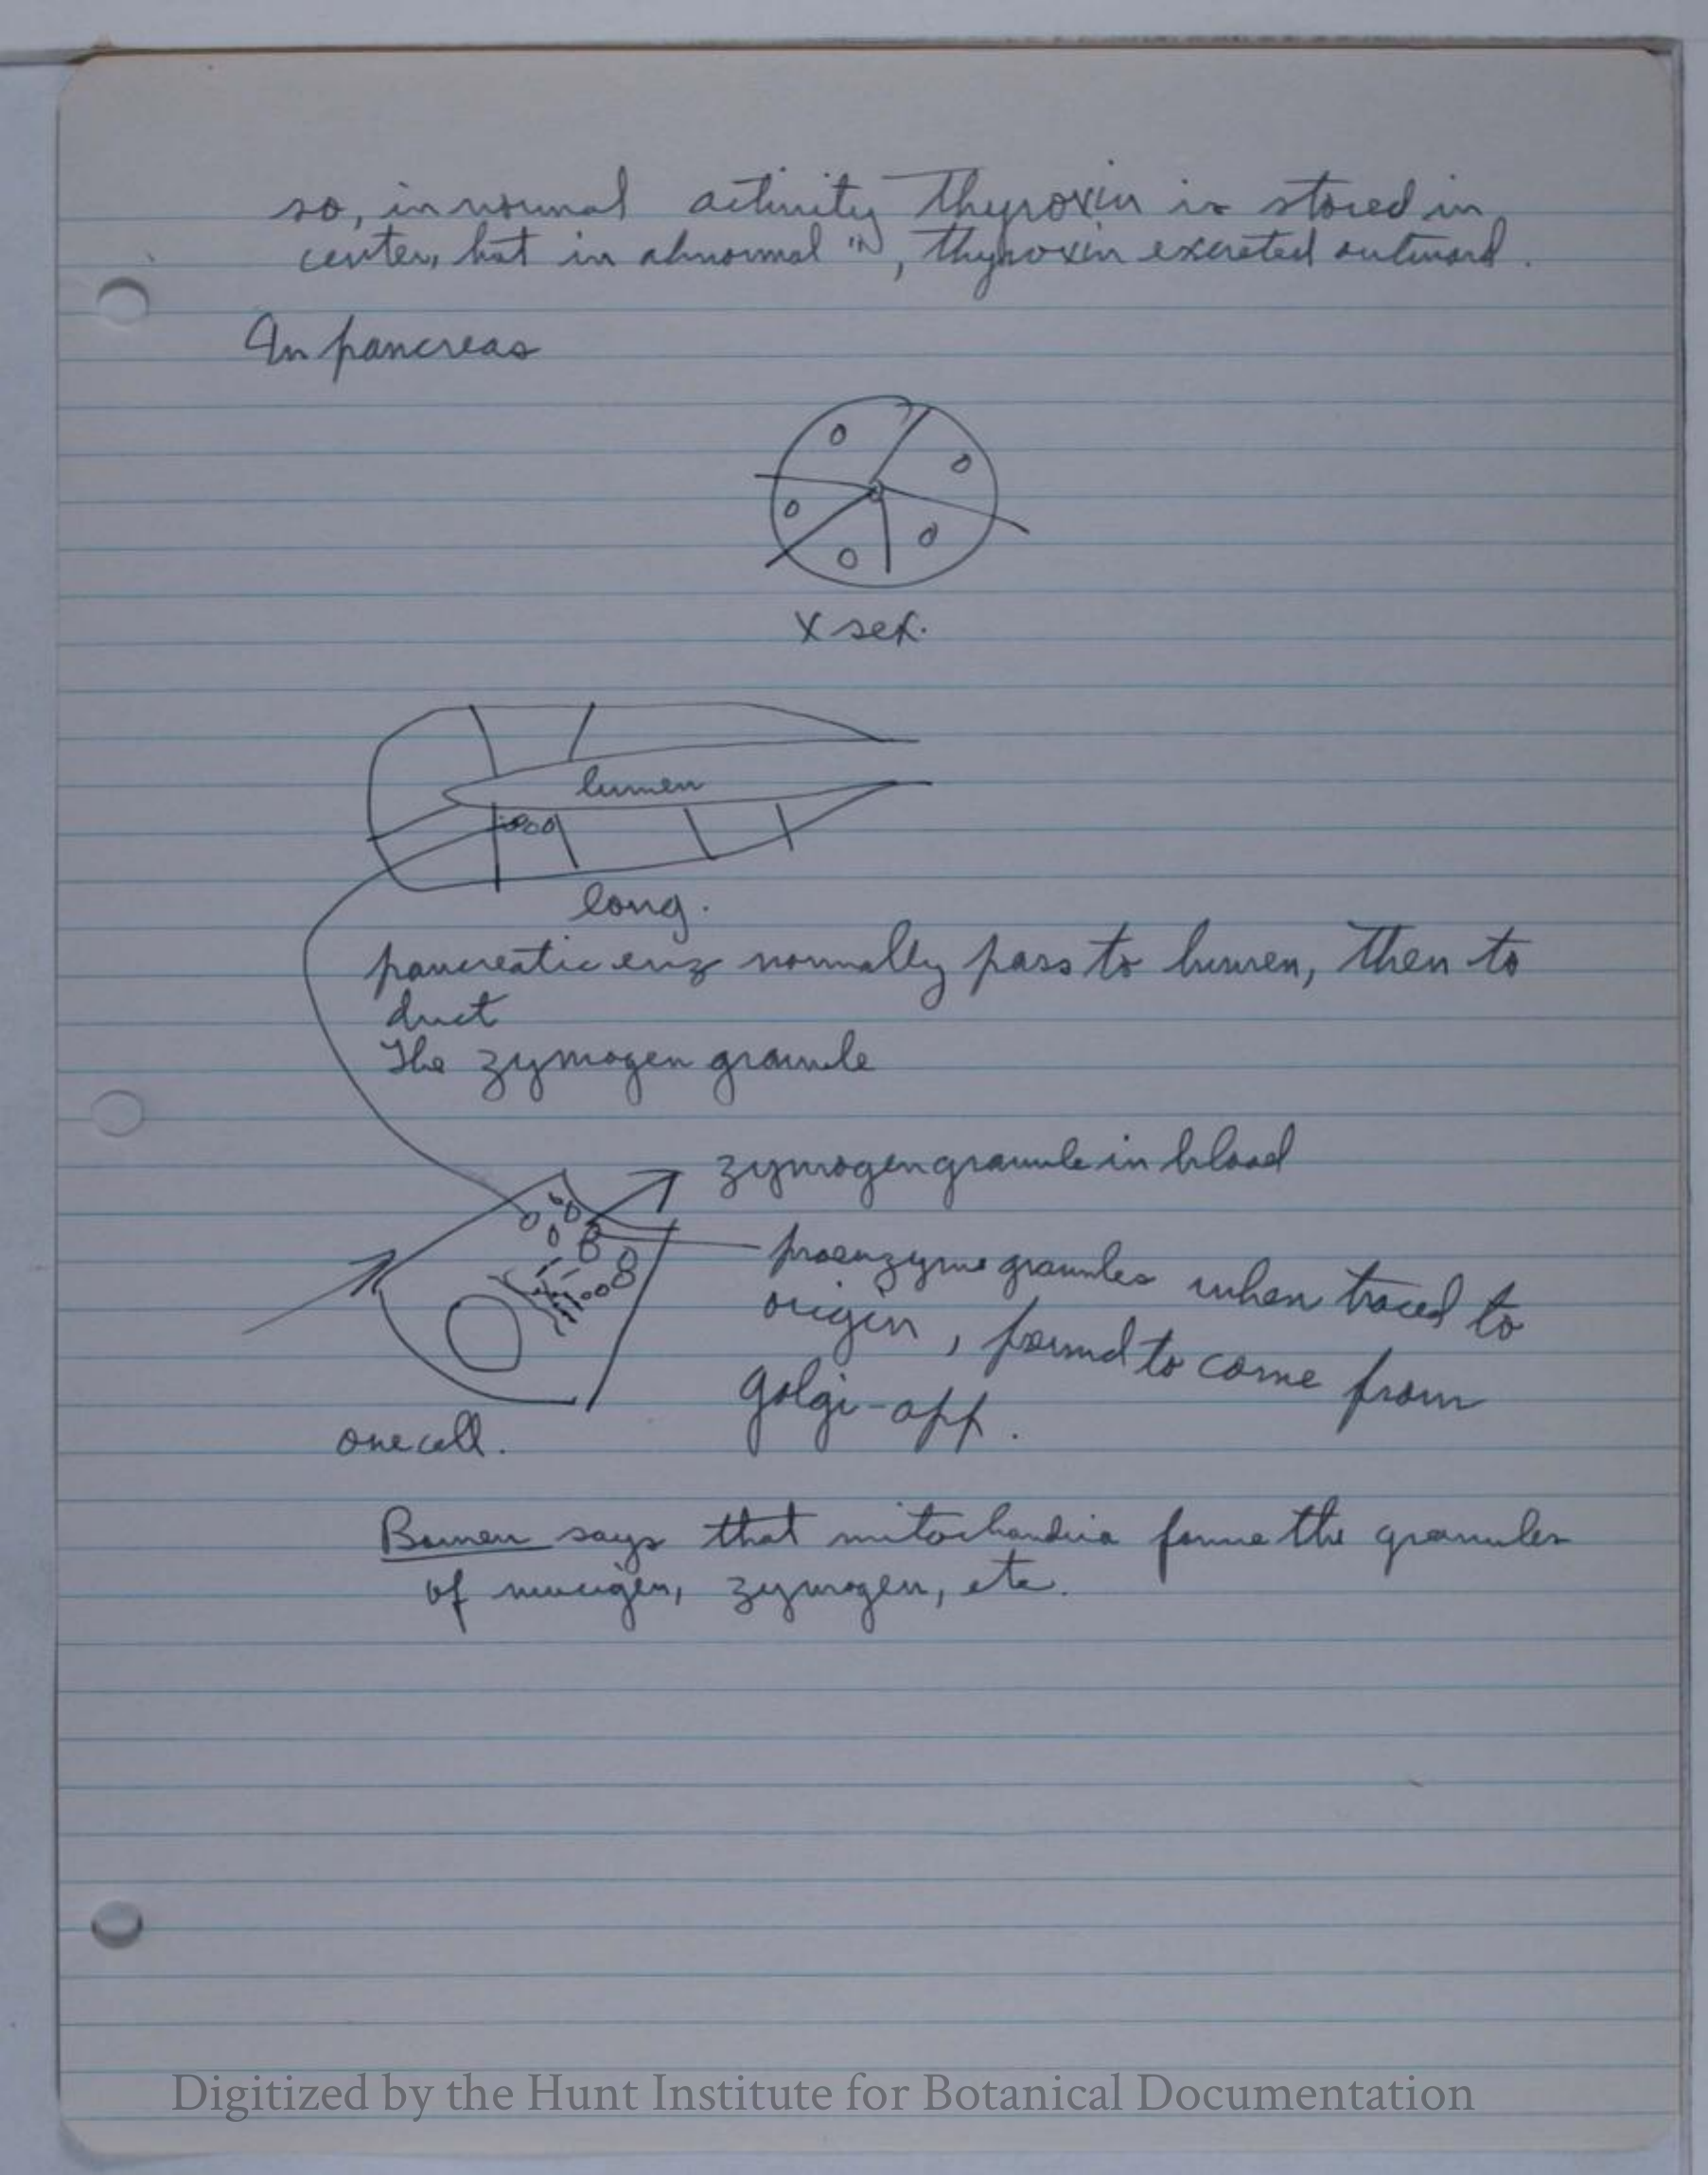 so, in normal activity thyroxin is stored in
center, but in abnormal " ", thyroxin excreted outward.
In pancreas
X sex.
lumen
long.
pancreatic enz normally pass to lumen, then to
duct
The zymogen granule
zymogen granule in blood
proenzyme granules when traced to
origin, found to come from
golgi-app.
one cell.
says that mitochondria forme the granules
of mucigen, zymogen, etc.
Digitized by the Hunt Institute for Botanical Documentation